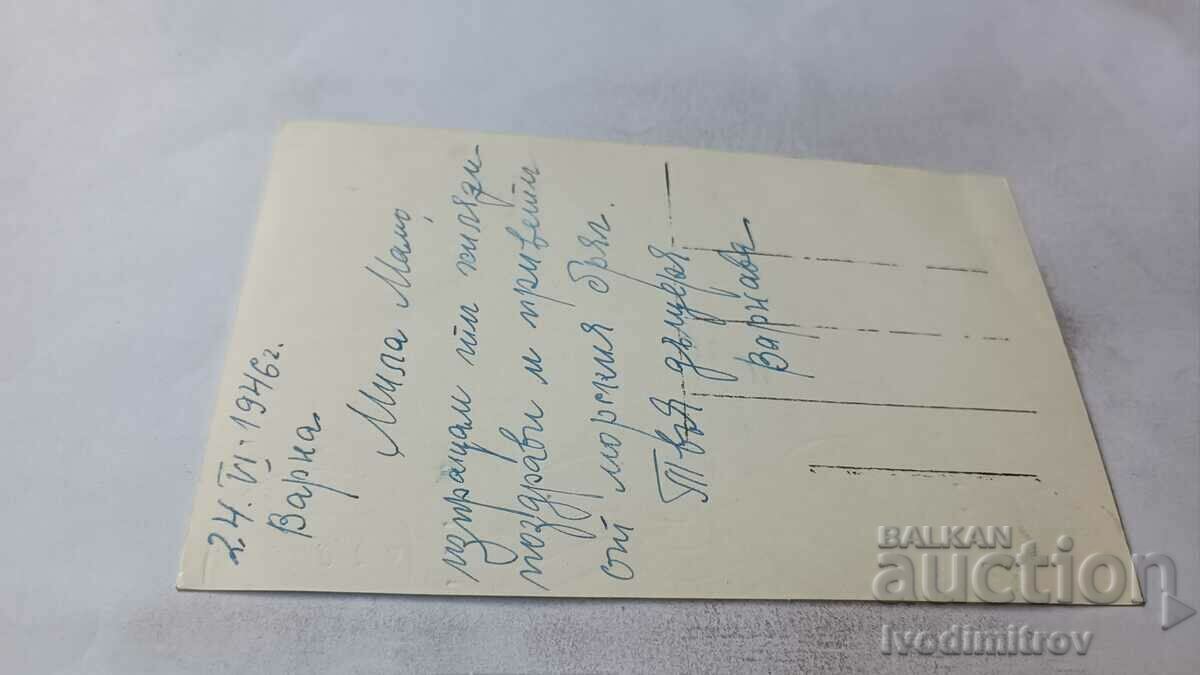 24. VI. 1946 г.
Варна
Мила Мамо,
изпращам ти хиляди
поздрави и привети
от морския бряг.
Твоя дъщеря
BALKAN
auction
Ivodimitrov